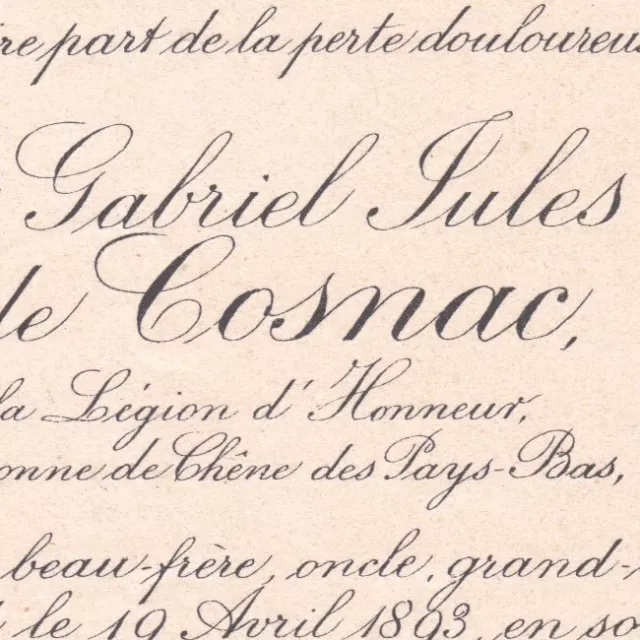 ire part de la perte douloureus
Gabriel Jules
de Cosnac,
la Légion d'Honneur,
onne de Chêne des Pays-Bas,
beau-frère, oncle, grand-
le 19 Avril 1893, en so